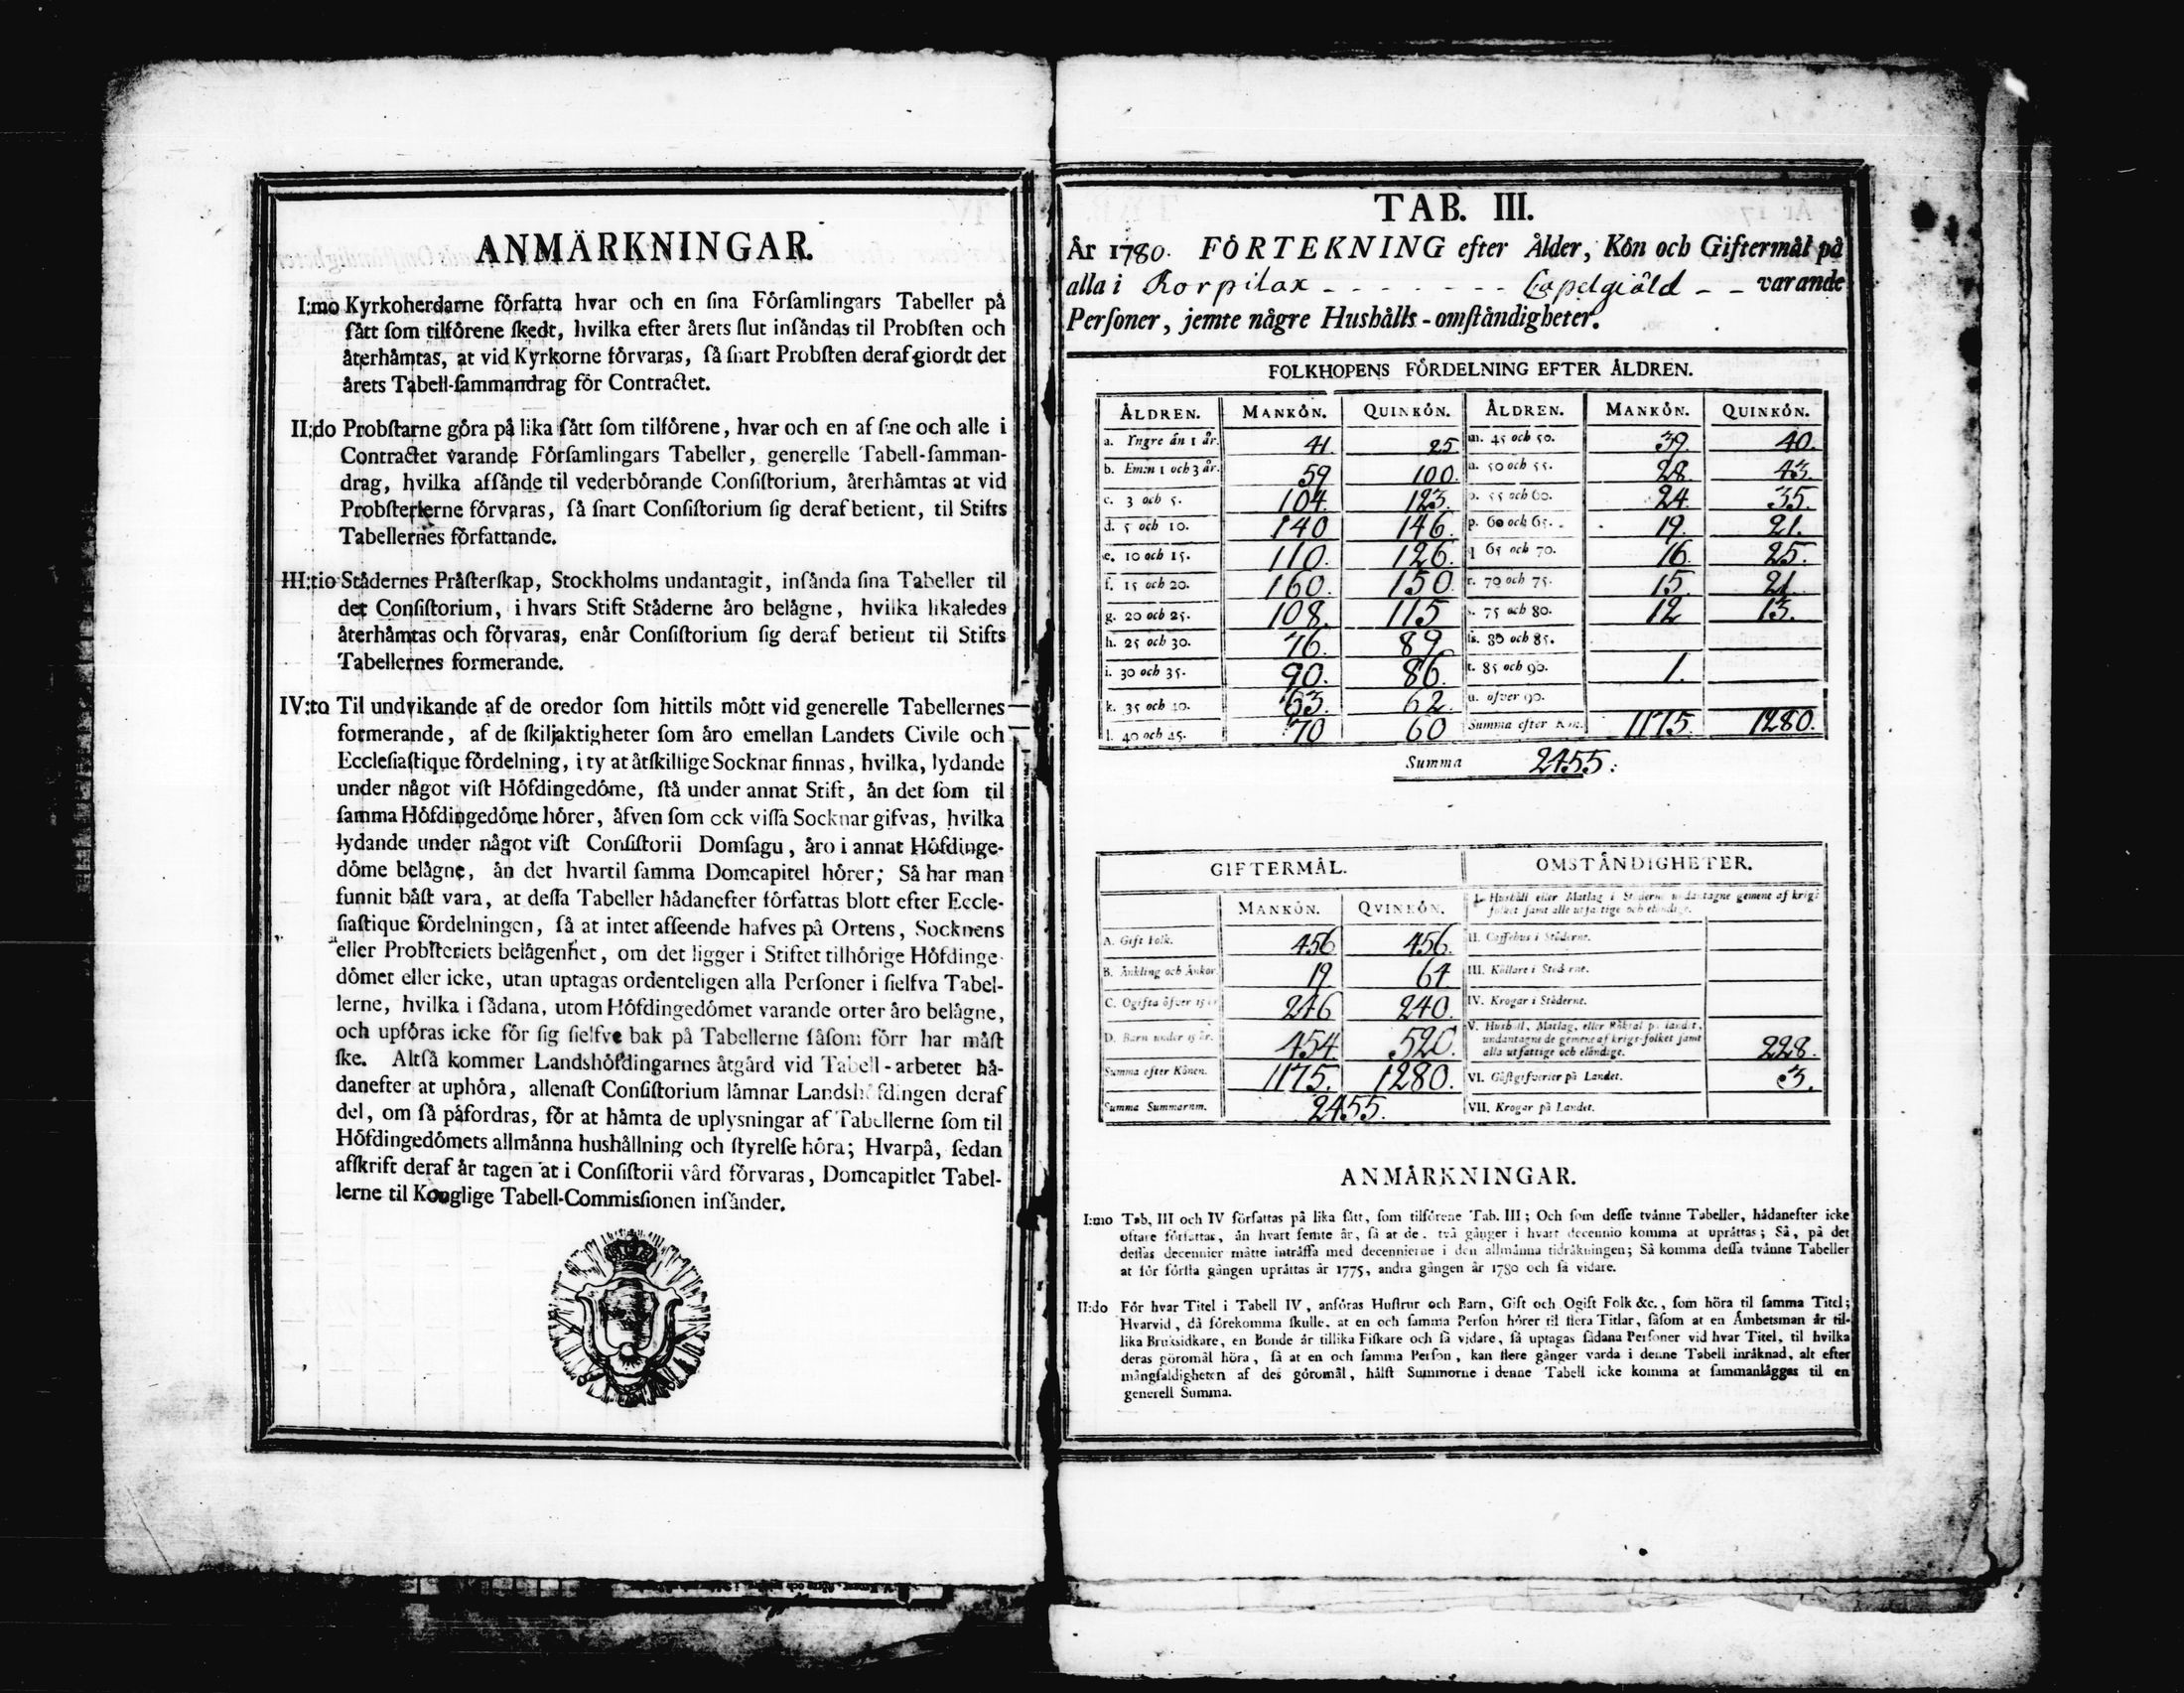 ANMÄRKNINGAR.
I:mo Kyrkoherdarne författa hvar och en sina Församlingars Tabeller på
sått som tilförene skedt, hvilka efter årets slut insåndas til Probsten och
återhåmtas, at vid Kyrkorne förvaras, så snart Probsten deraf giordt det
årets Tabell-sammandrag för Contractet.
II:do Probstarne göra på lika sått som tilförene, hvar och en af sine och alle i
Contractet varande Församlingars Tabeller, generelle Tabell-samman-
drag, hvilka afsånde til vederbörande Consistorium, återhåmtas at vid
Probsterierne förvaras, så snart Consistorium sig deraf betient, til Stifts
Tabellernes författande.
III:tio Stådernes Pråsterskap, Stockholms undantagit, insånda sina Tabeller til
det Consistorium, i hvars Stift Ståderne åro belågne, hvilka likaledes
återhåmtas och förvaras, enår Consistorium sig deraf betient til Stifts
Tabellernes formerande.
IV:to Til undvikande af de oredor som hittils mött vid generelle Tabellernes
formerande, af de skiljaktigheter som åro emellan Landets Civile och
Ecclesiastique fördelning, i ty at åtskillige Socknar finnas, hvilka, lydande
under något vist Höfdingedöme, stå under annat Stift, ån det som til
samma Höfdingedöme hörer, åfven som ock vissa Socknar gifvas, hvilka
lydande under något vist Consistorii Domsagu, åro i annat Höfdinge-
döme belågne, ån det hvartil samma Domcapitel hörer; Så har man
funnit båst vara, at dessa Tabeller hådanefter författas blott efter Eccle-
siastique fördelningen, så at intet afseende hafves på Ortens, Socknens
eller Probsteriets belågenhet, om det ligger i Stiftet tilhörige Höfdinge-
dömet eller icke, utan uptagas ordenteligen alla Personer i sielfva Tabel-
lerne, hvilka i sådana, utom Höfdingedömet varande orter åro belågne,
och upföras icke för sig sielfve bak på Tabellerne såsom förr har måst
ske. Altså kommer Landshöfdingarnes åtgård vid Tabell-arbetet hå-
danefter at uphöra, allenast Consistorium låmnar Landshöfdingen deraf
del, om så påfordras, för at håmta de uplysningar af Tabellerne som til
Höfdingedömets allmånna hushållning och styrelse höra; Hvarpå, sedan
afskrift deraf år tagen at i Consistorii vård förvaras, Domcapitlet Tabel-
lerne til Konglige Tabell-Commissionen insånder.
TAB. III.
År 1780. FÖRTEKNING efter Ålder, Kön och Giftermål på
alla i Korpilax - - - - - - - Capelgiåld - - varande
Personer, jemte några Hushålls-omståndigheter.
FOLKHOPENS FÖRDELNING EFTER ÅLDREN.
ÅLDREN. MANKÖN. QUINKÖN. ÅLDREN. MANKÖN. QUINKÖN.
a. Yngre ån 1 år. 41. 25 m. 45 och 50. 39. 40.
b. Em:n 1 och 3 år. 59 100. n. 50 och 55. 28. 43.
c. 3 och 5. 104. 123. o. 55 och 60. 24. 35.
d. 5 och 10. 140 146. p. 60 och 65. 19. 21.
e. 10 och 15. 110. 126. q 65 och 70. 16. 25.
f. 15 och 20. 160. 150. r. 70 och 75. 15. 21.
g. 20 och 25. 108. 115 s. 75 och 80. 12 13.
h. 25 och 30. 76. 89. ss. 80 och 85.
i. 30 och 35. 90. 86. t. 85 och 90. 1.
k. 35 och 40. 63. 62. u. öfver 90.
l. 40 och 45. 70 60 Summa efter Kön. 1175. 1280.
Summa 2455.
GIFTERMÅL. OMSTÅNDIGHETER.
MANKÖN. QVINKÖN. I. Hushåll eller Matlag i Ståderne undantagne gemene af krigs
folket samt alle utfattige och elåndige.
A. Gift Folk. 456 456. II. Caffehus i Ståderne.
B. Ånkling och Ånkor. 19 64. III. Källare i Ståderne.
C. Ogifta öfver 15 år 246 240. IV. Krogar i Ståderne.
D. Barn under 15 år. 454. 520. V. Hushåll, Matlag, eller Röktal på landet,
undantagne de gemene af krigs-folket samt
alla utfattige och elåndige. 228.
Summa efter Könen. 1175. 1280. VI. Gåstgifverier på Landet. 3.
Summa Summarum. 2455. VII. Krogar på Landet.
ANMÅRKNINGAR.
I:mo Tab. III och IV författas på lika sått, som tilförene Tab. III; Och som desse tvånne Tabeller, hådanefter icke
oftare författas, ån hvart femte år, så at de. två gånger i hvart decennio komma at upråttas; Så, på det
dessas decennier måtte intråffa med decennierne i den allmånna tidråkningen; Så komma dessa tvånne Tabeller
at för första gången upråttas år 1775, andra gången år 1780 och så vidare.
II:do För hvar Titel i Tabell IV, anföras Hustrur och Barn, Gift och Ogift Folk &c., som höra til samma Titel;
Hvarvid, då förekomma skulle, at en och samma Person hörer til flera Titlar, såsom at en Åmbetsman år til-
lika Bruksidkare, en Bonde år tillika Fiskare och så vidare, så uptagas sådana Personer vid hvar Titel, til hvilka
deras göromål höra, så at en och samma Person, kan flere gånger varda i denne Tabell inråknad, alt efter
mångfaldigheten af des göromål, hålst Summorne i denne Tabell icke komma at sammanlågges til en
generell Summa.